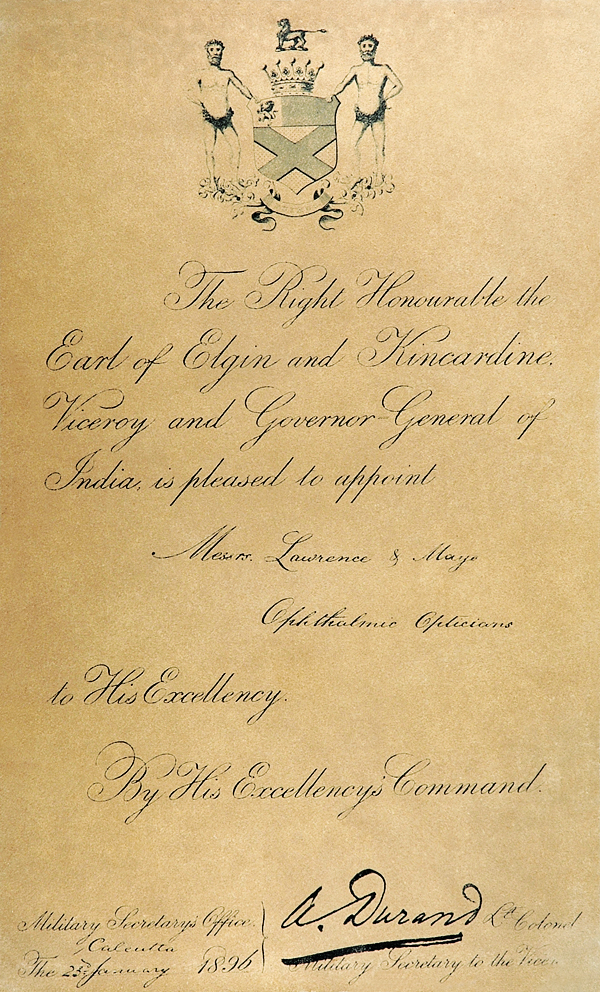 The Right Honourable the
Earl of Elgin and Kincardine,
Viceroy and Governor-General of
India, is pleased to appoint
Messrs. Lawrence & Mayo
Ophthalmic Opticians
to His Excellency.
By His Excellency's Command.
Military Secretary's Office,
Calcutta
The January 1896
A. Durand Lt Colonel
Military Secretary to the